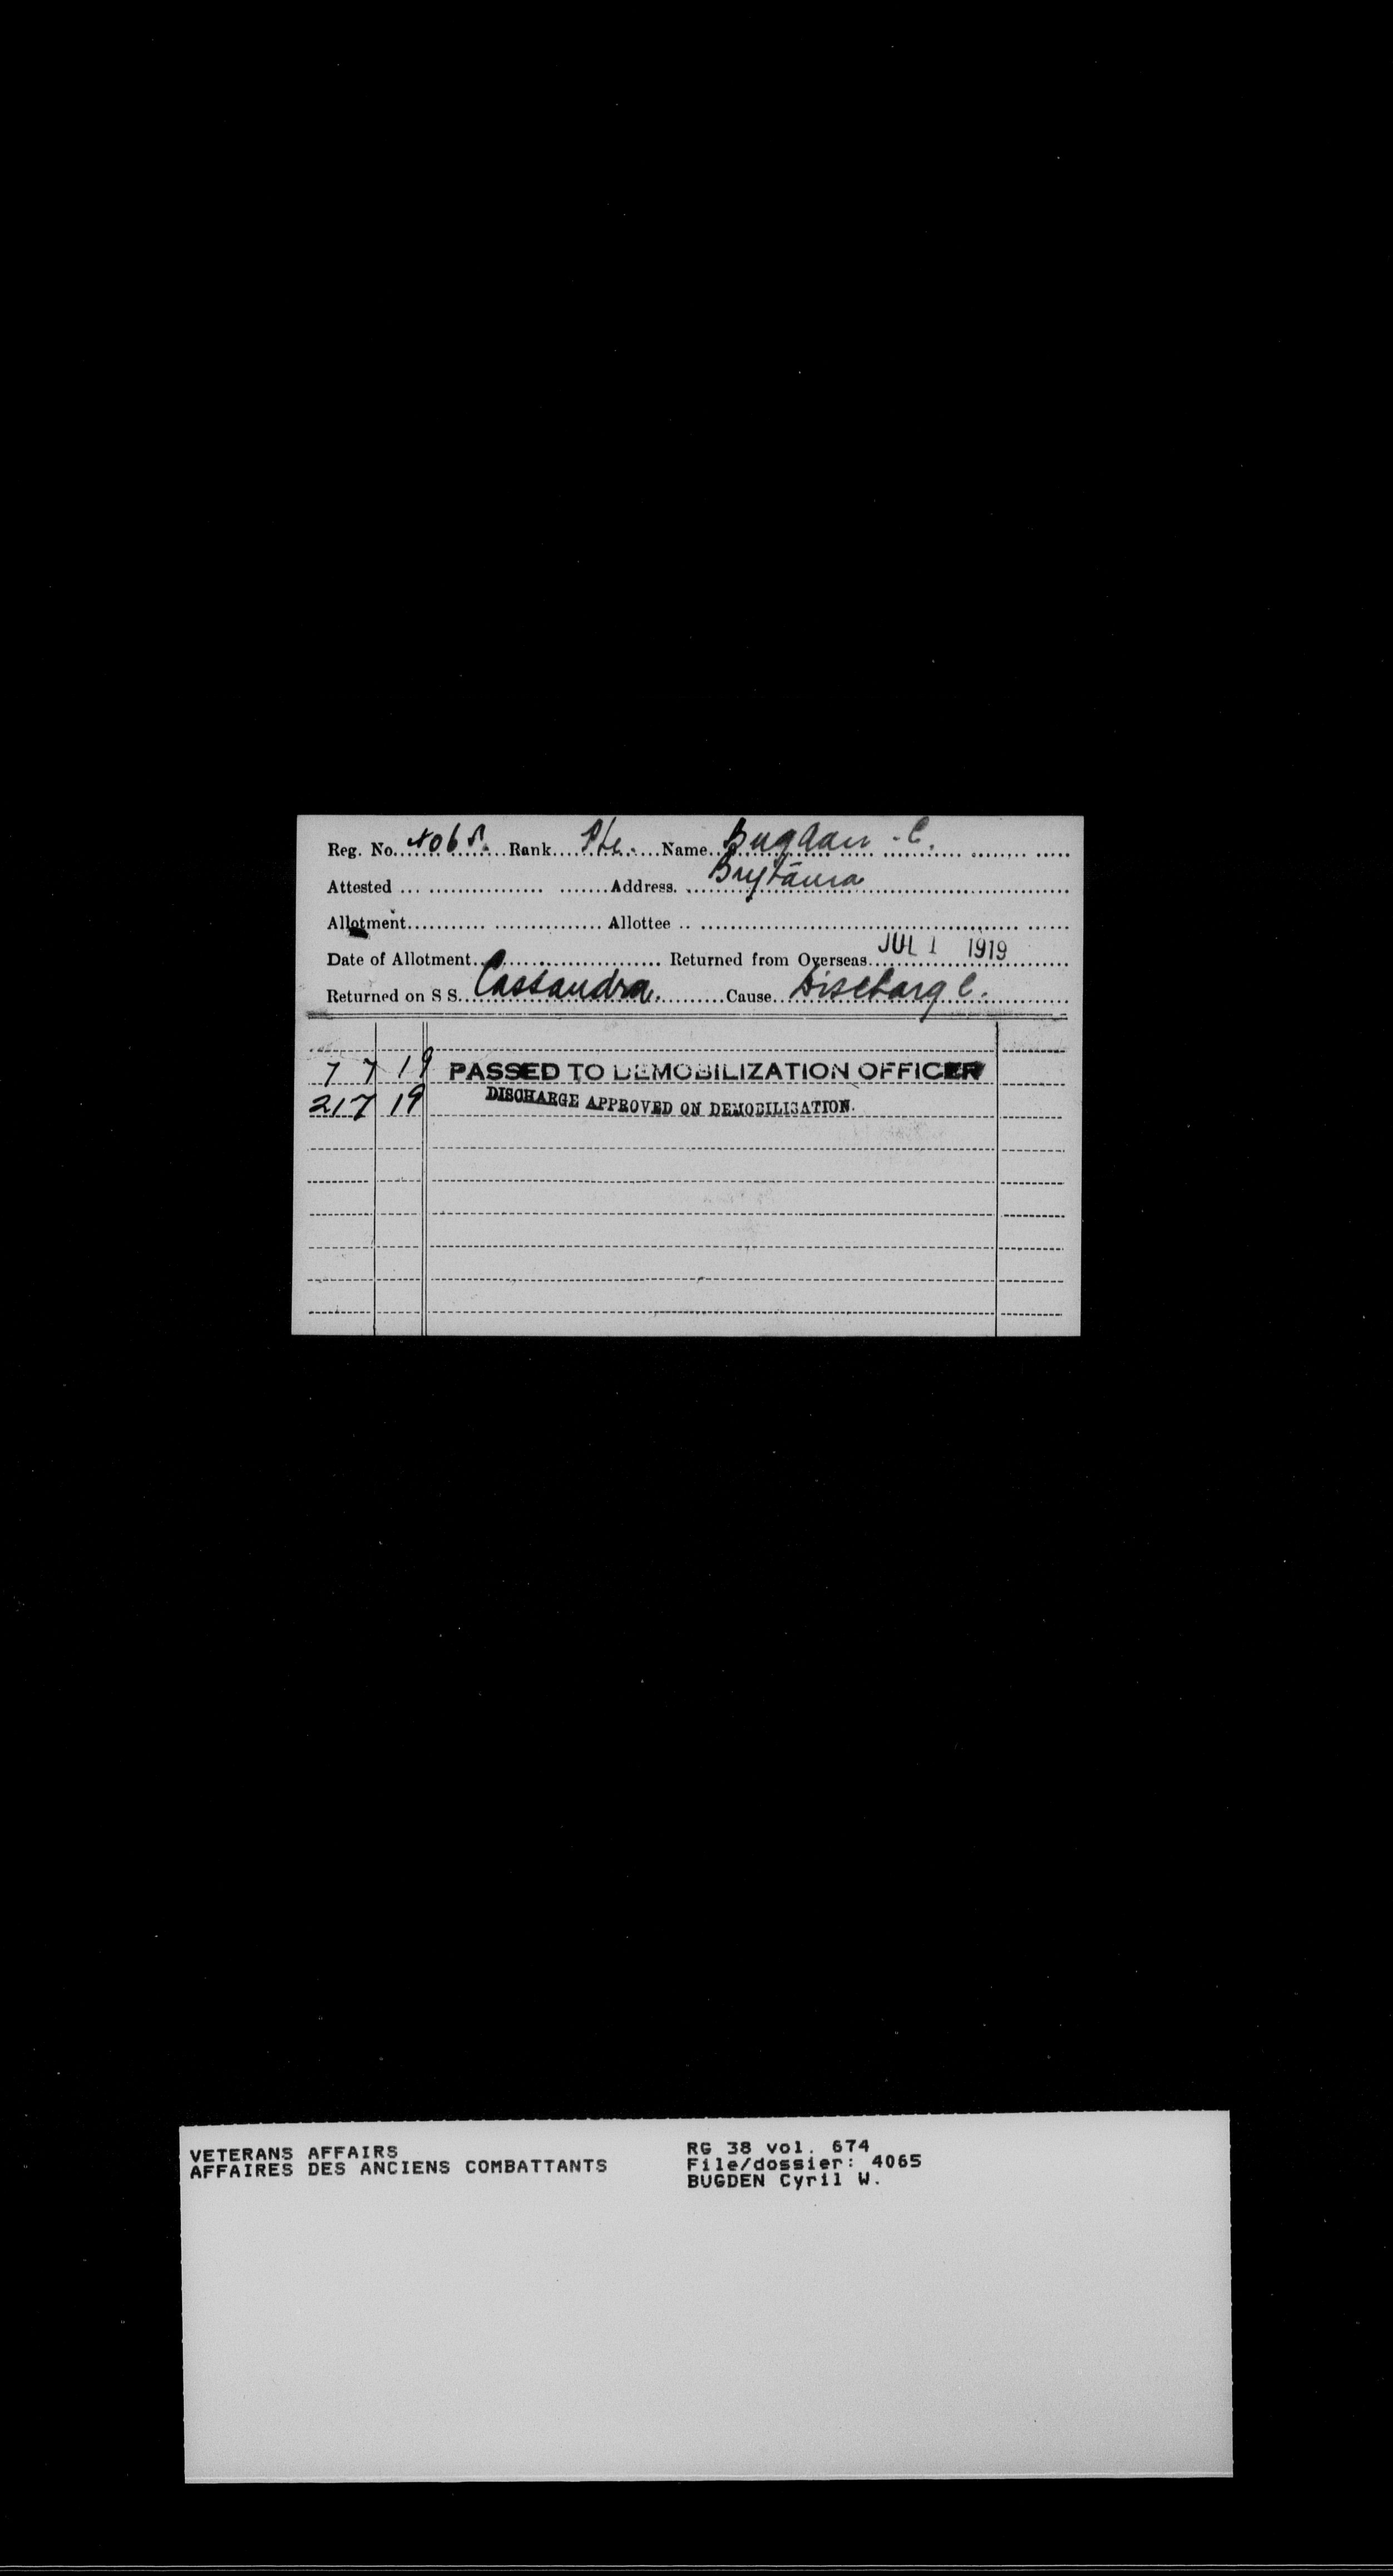 Reg. No. 4065. Rank Pte. Name Bugden C.
Attested Address.
Allotment Allottee
Date of Allotment Returned from Overseas JUL 1 1919
Returned on S S. Cassandra. Cause Discharge.
7 7 19 PASSED TO DEMOBILIZATION OFFICER
21 7 19 DISCHARGE APPROVED ON DEMOBILISATION.
VETERANS AFFAIRS
AFFAIRES DES ANCIENS COMBATTANTS
RG 38 vol. 674
File/dossier: 4065
BUGDEN Cyril W.